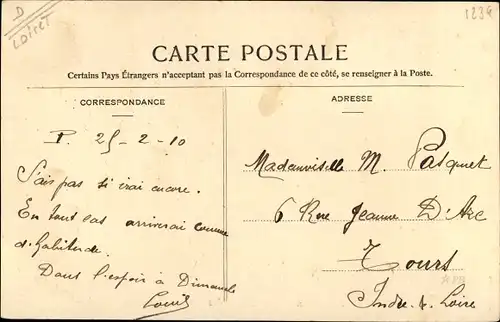 D
LOIRET
1239
CARTE POSTALE
Certains Pays Étrangers n'acceptent pas la Correspondance de ce côté, se renseigner à la Poste.
CORRESPONDANCE
P. 25-2-10
Sais pas si irai encore.
En tout cas arriverai comme
d'habitude.
Dans l'espoir à Dimanche
Louis
ADRESSE
Mademoiselle M. Pasquet
6 Rue Jeanne D'Arc
Tours
Indre & Loire